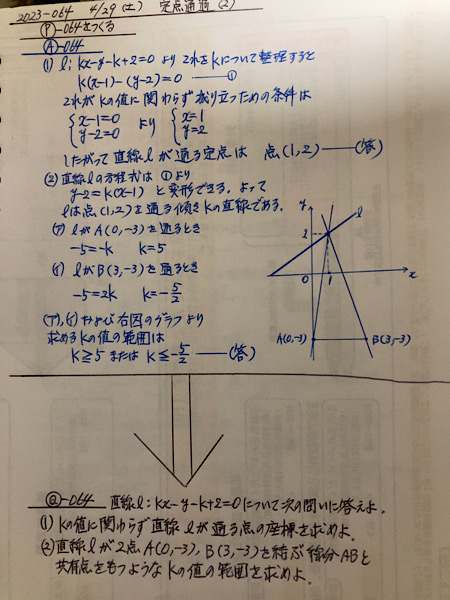 2023-064 4/29(土) 定点通過(2)
Ⓟ-064をつくる
Ⓐ-064
(1) l: kx-y-k+2=0 より これをkについて整理すると
k(x-1)-(y-2)=0 ——①
これがkの値に関わらず成り立つための条件は
{x-1=0 y-2=0 より {x=1 y=2
したがって直線lが通る定点は 点(1,2)——(答)
(2) 直線lの方程式は ①より
y-2=k(x-1) と変形できる。よって
lは点(1,2)を通る傾きkの直線である。
(ア) lがA(0,-3)を通るとき
-5=-k k=5
(イ) lがB(3,-3)を通るとき
-5=2k k=-5/2
(ア),(イ)および右図のグラフより
求めるkの値の範囲は
k≧5 または k≦-5/2 ——(答)
y
l
2
0
1
x
A(0,-3)
B(3,-3)
Ⓠ-064 直線l: kx-y-k+2=0について次の問いに答えよ。
(1) kの値に関わらず直線lが通る点の座標を求めよ。
(2) 直線lが2点A(0,-3), B(3,-3)を結ぶ線分ABと
共有点をもつようなkの値の範囲を求めよ。